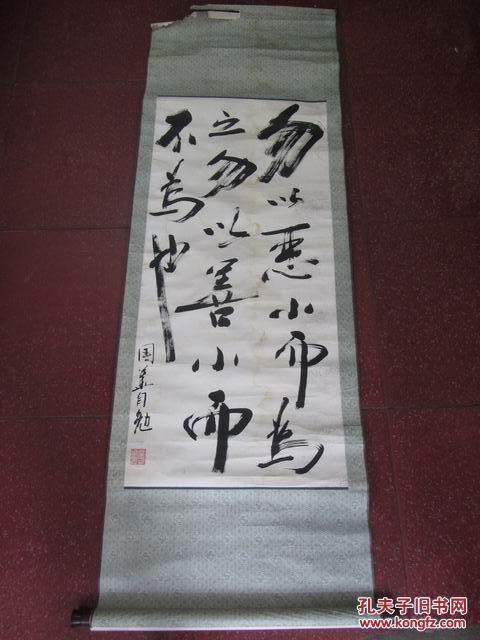 勿以恶小而為
之勿以善小而
不為也
国 自勉
孔夫子旧书网
www.kongfz.com